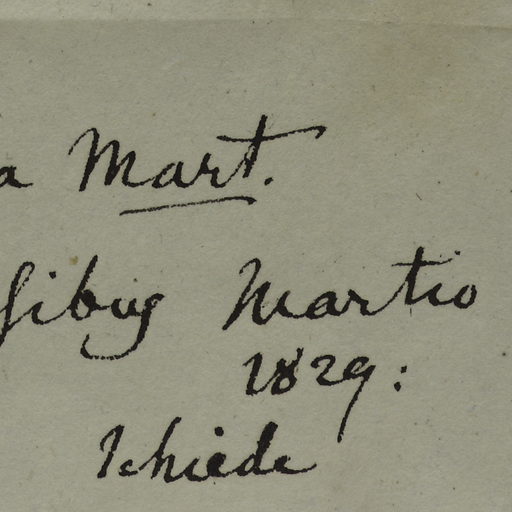 a Mart.
Martio
1829:
Schiede